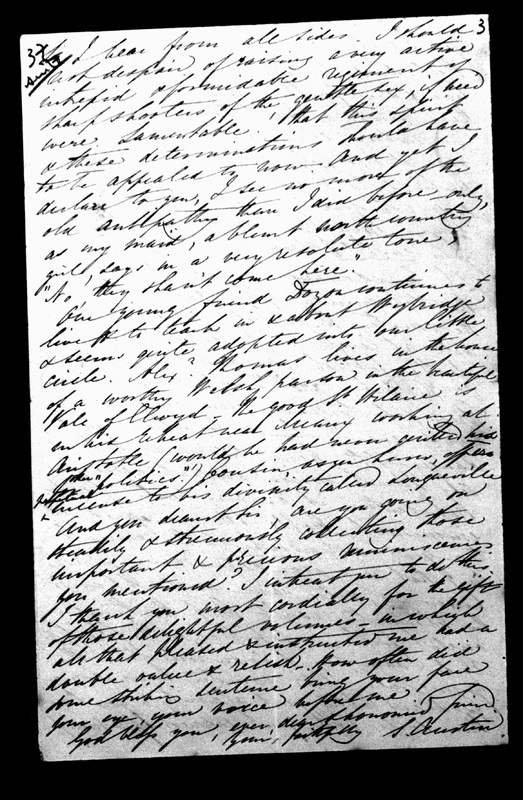 32
3
So I hear from all sides. I should
not despair of raising a very active
intrepid & formidable regiment of
sharpshooters of the gentle sex, if need
were. Lamentable! that this spirit
& these determinations should have
to be appealed to now. And yet I
declare to you, I see no more of the
old antipathy than I did before - only,
as my maid, a blunt north country
girl, says in a very resolute tone,
"No, they shan't come here."
Our young friend Dozon continues to
live & to teach in & about Weybridge
& seems quite adopted into our little
circle. Alexr Thomas lives in the house
of a worthy Welsh parson in the beautiful
Vale of Clwyd - The good St Hilaire is
in his retreat near Meaux working at
Aristotle (would he had never quitted his
"Politics"!) Cousin, as you know, offers
incense to his divinity called Longueville
And you dearest Sir, are you going on
steadily & strenuously collecting those
important & precious reminiscences
you mentioned? I intreat you to do this
I thank you most cordially for the gift
of those delightful volumes - in which
all that pleased & instructed me had a
double value & relish. How often did
some striking sentence bring your face
your eye, your voice before me
God bless you, ever dear & honoured friend
Your, faithfully S Austin